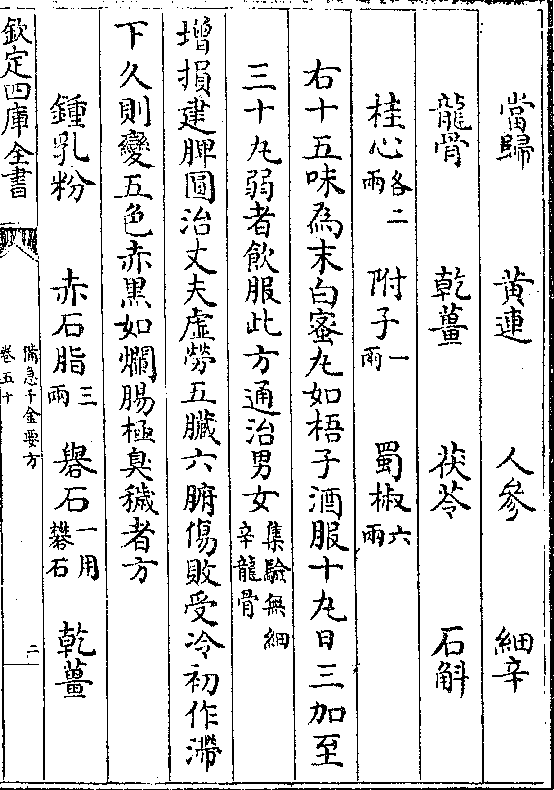 當歸 黃連 人參 細辛
龍骨 乾薑 茯苓 石斛
桂心各二兩 附子一兩 蜀椒六兩
右十五味為末白蜜丸如梧子酒服十丸日三加至
三十丸弱者飲服此方通治男女集驗無細辛龍骨
增損建脾圓治丈夫虛勞五臟六腑傷敗受冷初作滯
下久則變五色赤黑如爛腸極臭穢者方
鍾乳粉 赤石脂三兩 礜石一用礬石 乾薑
欽定四庫全書
備急千金要方
卷五十
二